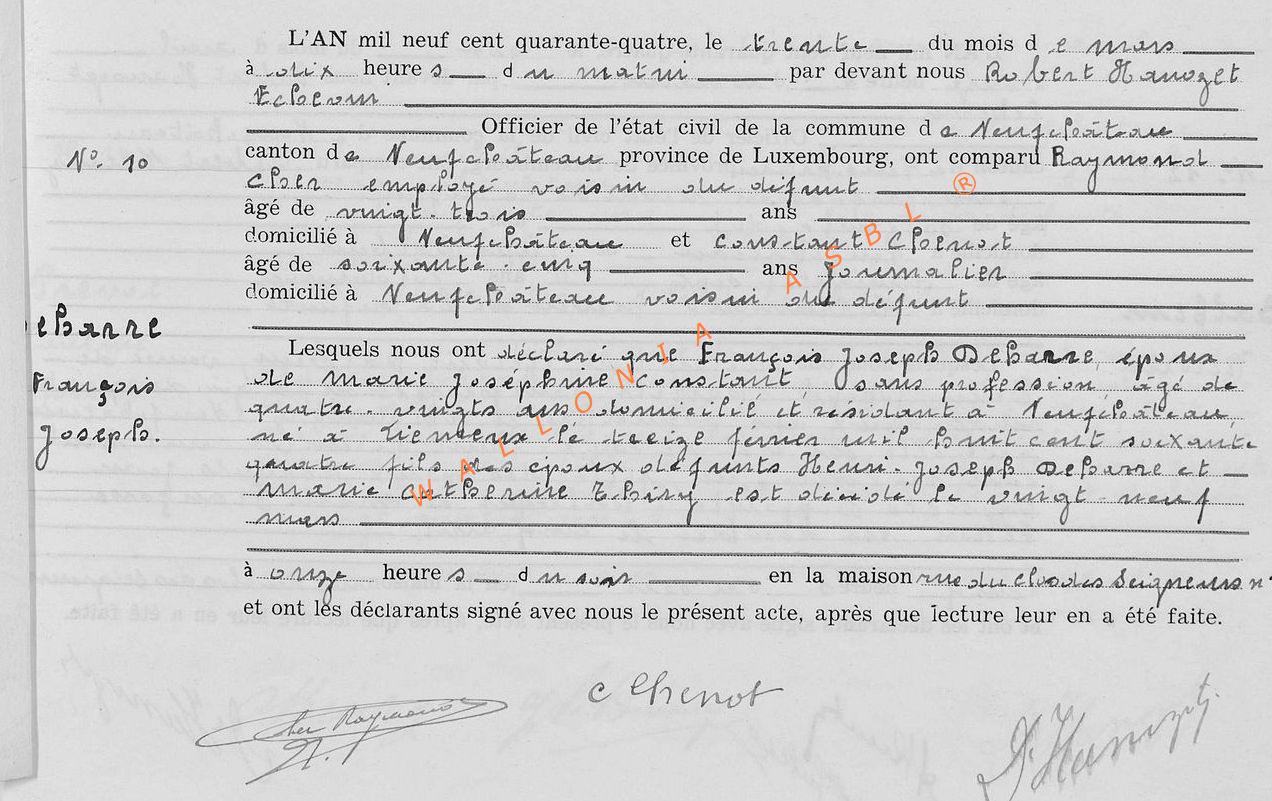 L'AN mil neuf cent quarante-quatre, le trente du mois d e mars
à dix heure s du matin par devant nous Robert Hanozet
Echevin
Officier de l'état civil de la commune d e Neufchâteau
N° 10
canton d e Neufchâteau province de Luxembourg, ont comparu Raymond
Cher employé voisin du défunt
âgé de vingt-trois ans
domicilié à Neufchâteau et Constant Chenot
âgé de soixante-cinq ans journalier
domicilié à Neufchâteau voisin du défunt
Debarre
François
Joseph.
Lesquels nous ont déclaré que François Joseph Debarre, époux
de Marie Joséphine Constant sans profession âgé de
quatre-vingts ans domicilié et résidant à Neufchâteau
né à Tiemeux le treize février mil huit cent soixante
quatre fils des époux défunts Henri-Joseph Debarre et
Marie Catherine Thiry est décédé le vingt-neuf
mars
à onze heure s d u soir en la maison rue du clos des Seigneurs n°
et ont les déclarants signé avec nous le présent acte, après que lecture leur en a été faite.
Cher Raymond
C Chenot
R. Hanozet
WALLONIA ASBL ®